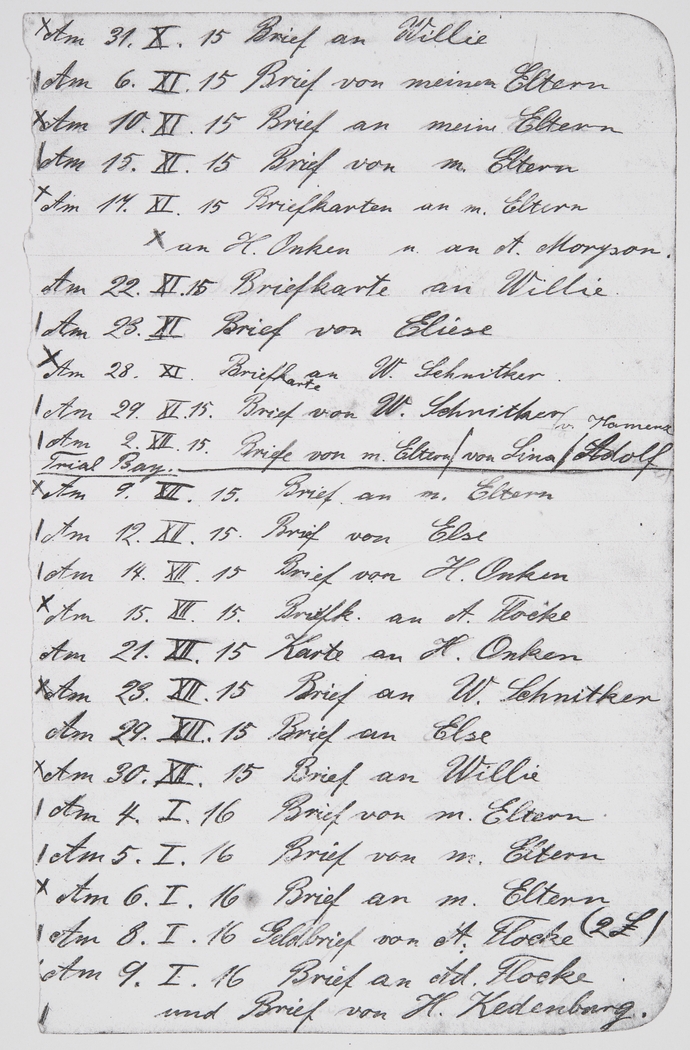 x Am 31. X. 15 Brief an Willie
| Am 6. XI. 15 Brief von meinen Eltern
x Am 10. XI. 15 Brief an mein. Eltern
| Am 15. XI. 15 Brief von m. Eltern
x Am 17. XI. 15 Briefkarten an m. Eltern
x an H. Onken u. an A. Moryson.
Am 22. XI. 15 Briefkarte an Willie.
| Am 23. XI Brief von Eliese
x Am 28. XI. Briefkarte an W. Schnitker.
| Am 29. XI. 15. Brief von W. Schnitker
| Am 2. XII. 15. Briefe von m. Eltern / von Lina / Adolf
Trial Bay.
x Am 9. XII. 15. Brief an m. Eltern
| Am 12. XII. 15. Brief von Else
| Am 14. XII. 15 Brief von H. Onken
x Am 15. XII. 15. Briefk. an A. Flocke
Am 21. XII. 15 Karte an H. Onken
x Am 23. XII. 15 Brief an W. Schnitker
Am 29. XII. 15 Brief an Else
x Am 30. XII. 15 Brief an Willie
| Am 4. I. 16 Brief von m. Eltern
| Am 5. I. 16 Brief von m. Eltern
x Am 6. I. 16 Brief an m. Eltern
| Am 8. I. 16 Geldbrief von A. Flocke (2 £)
Am 9. I. 16 Brief an Ad. Flocke
| und Brief von H. Kedenburg.